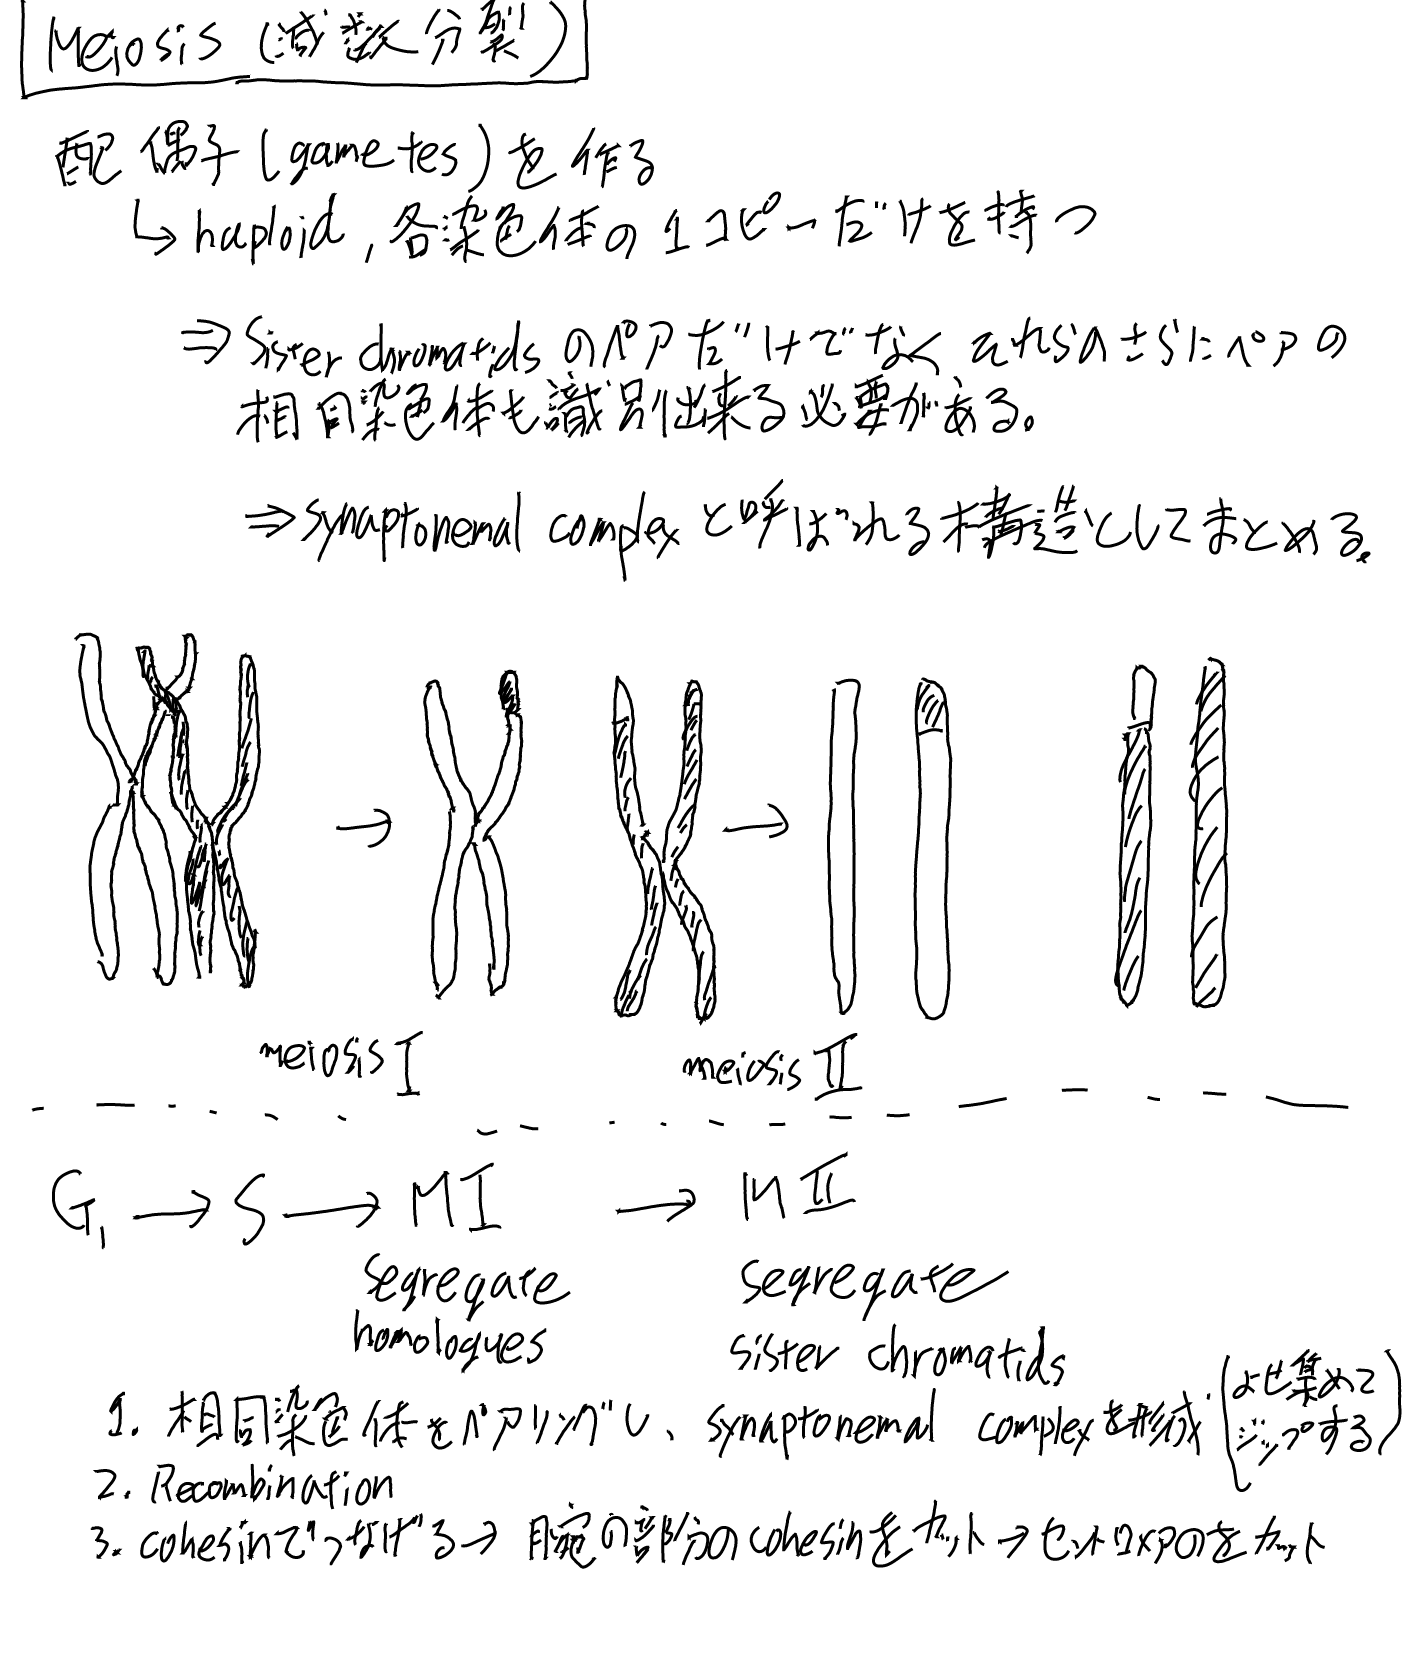 Meiosis (減数分裂)
配偶子(gametes)を作る
↳ haploid, 各染色体の1コピーだけを持つ
⇒ Sister chromatidsのペアだけでなくそれらのさらにペアの
相同染色体も識別出来る必要がある。
⇒ synaptonemal complexと呼ばれる構造としてまとめる。
meiosis I
meiosis II
G₁ → S → MI → MII
segregate
homologues
segregate
sister chromatids
1. 相同染色体をペアリングし、synaptonemal complexを形成 (よせ集めて
ジップする)
2. Recombination
3. cohesinでつなげる→ 腕の部分のcohesinをカット→セントロメアのをカット